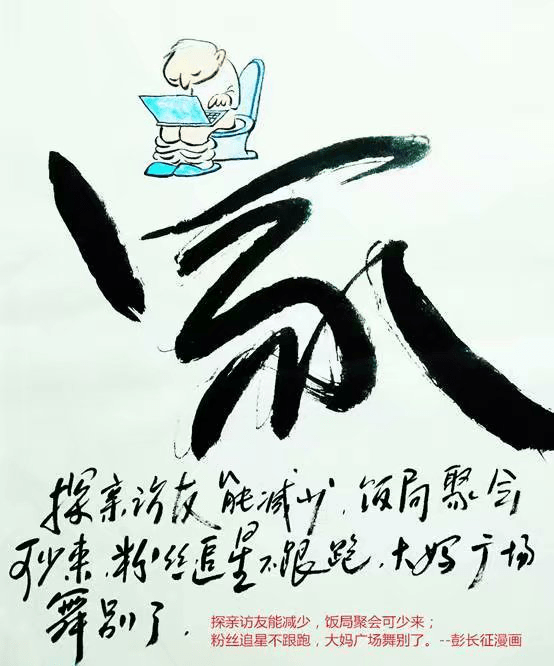 家
探亲访友能减少,饭局聚会
可少来,粉丝追星不跟跑,大妈广场
舞别了.
探亲访友能减少，饭局聚会可少来；
粉丝追星不跟跑，大妈广场舞别了。--彭长征漫画